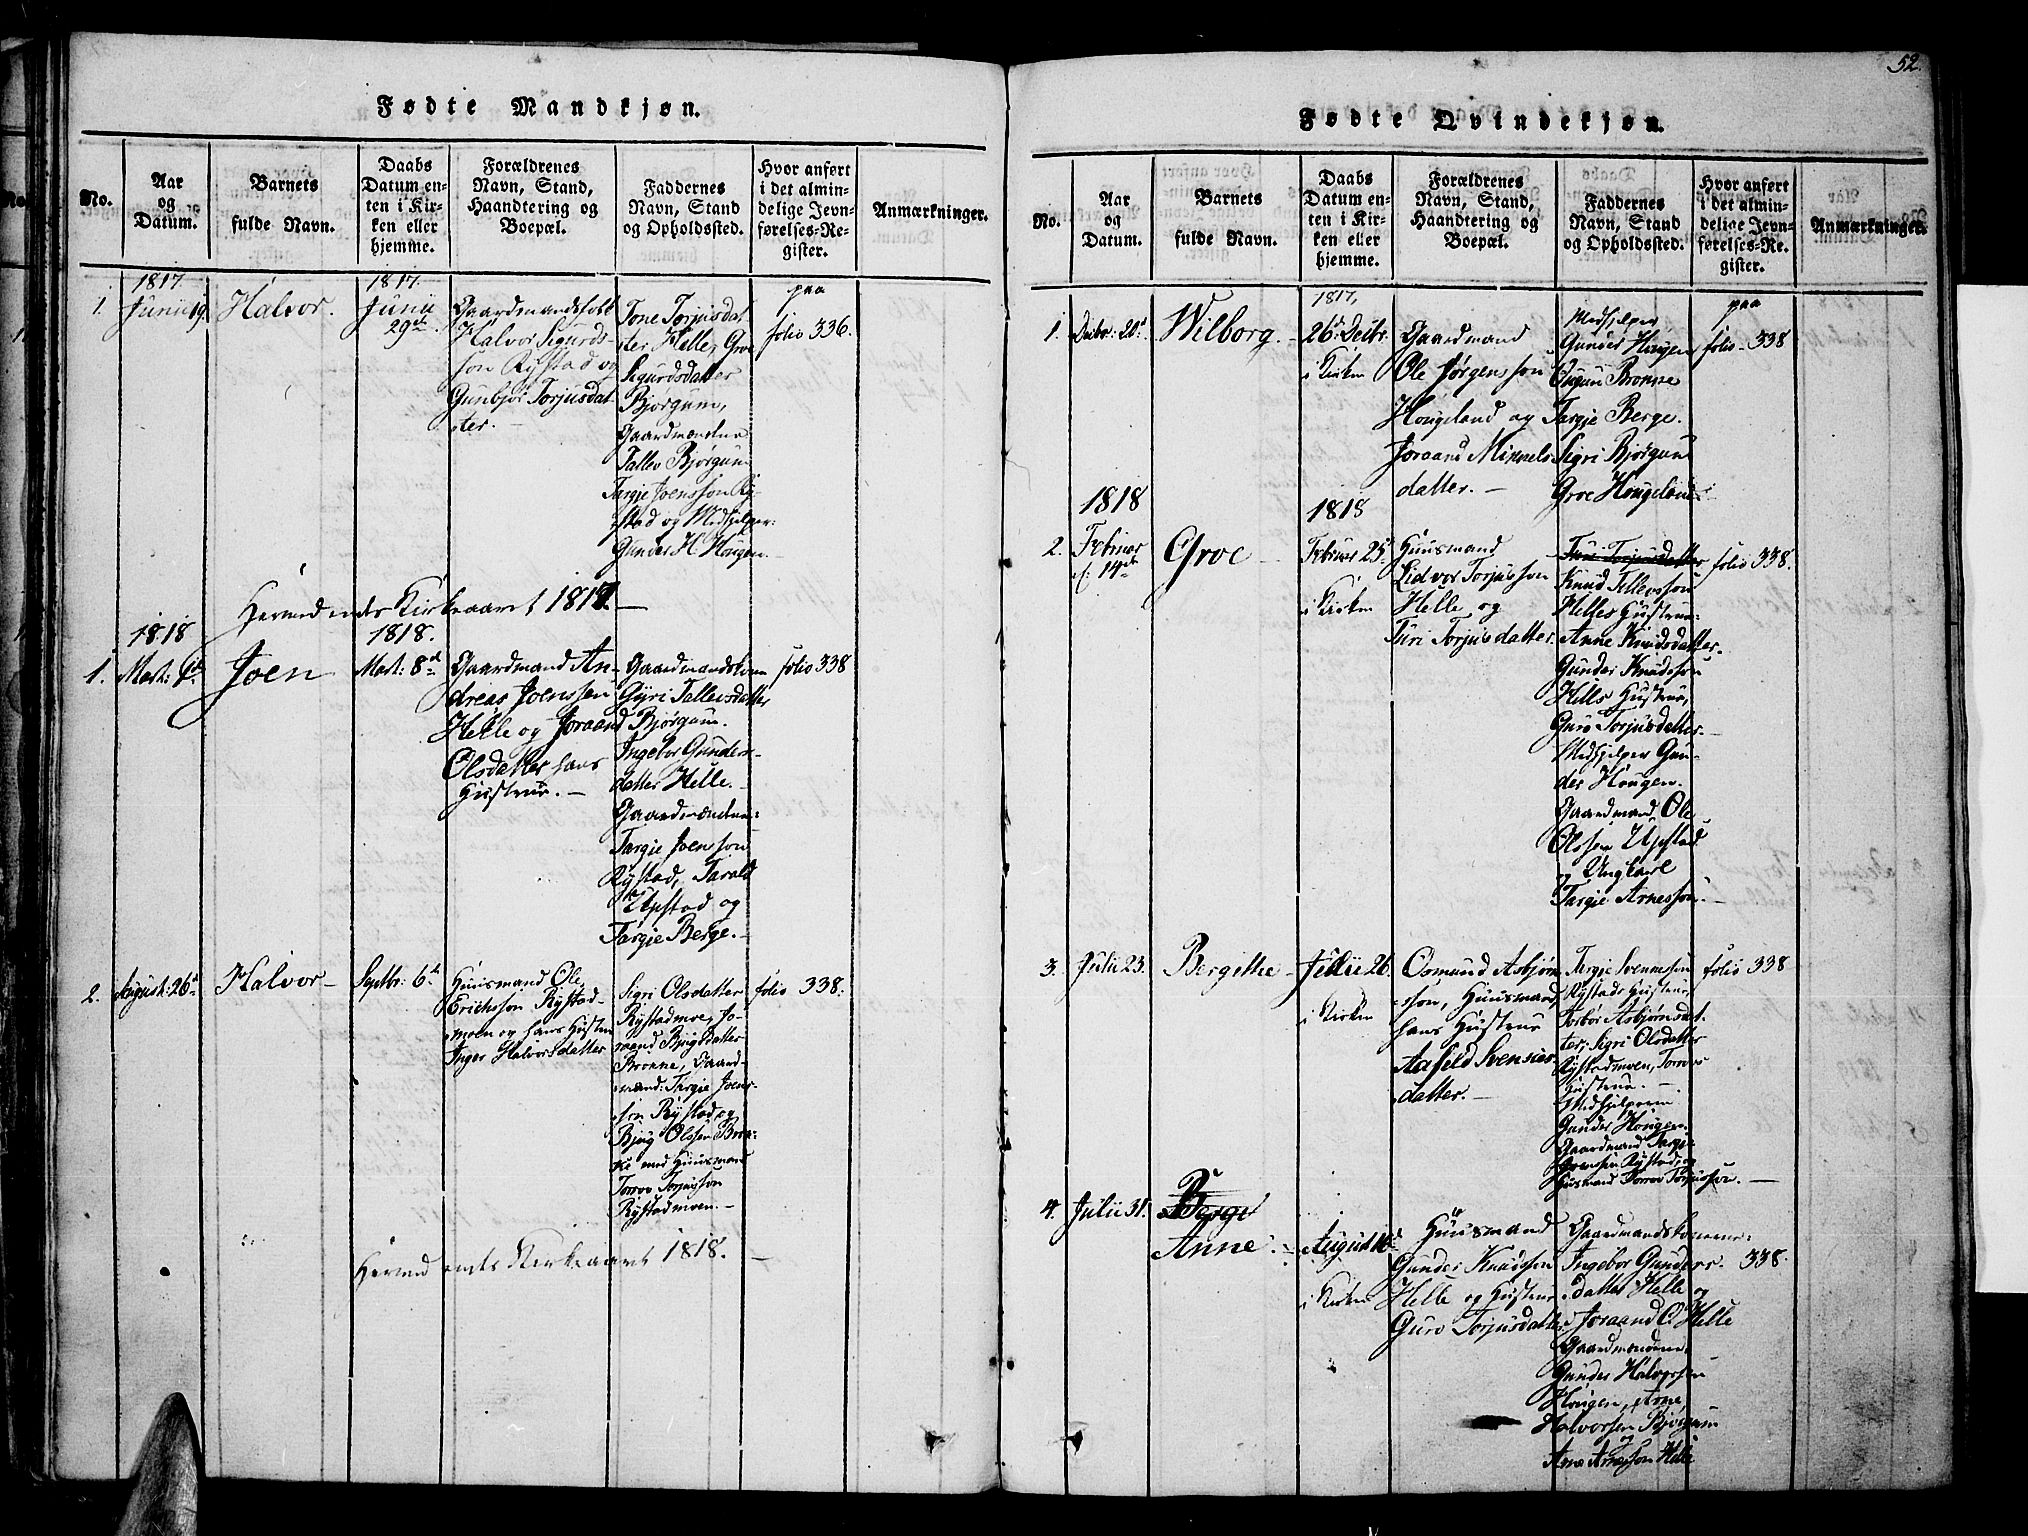 52.
Fødte Mandkjøn.
No.
Aar
og
Datum.
Barnets
fulde Navn.
Daabs
Datum en-
ten i Kir-
ken eller
hjemme.
Forældrenes
Navn, Stand,
Haandtering og
Boepæl.
Faddernes
Navn, Stand
og Opholdssted.
Hvor anført
i det almin-
delige Jevn-
førelses-Re-
gister.
Anmærkninger.
1.
1817.
Junii 19.
Halvor.
1817.
Junii
29de
Gaardmandsfolk
Halvor Sigurds-
søn Rystad og
Gunbjør Torjusdat-
ter.
Tone Torjusdat
ter Helle, Groe
Sigurdsdatter
Bjørgum,
Gaardmændene
Tallev Bjørgum
Targie Joensson Ry-
stad og Medhjelper
Gunder H. Hougen.
paa
folio 336.
Hermed endes Kirkeaaret 1817.
1818
1.
Mart: 1ste
Joen
1818.
Mart: 8de
Gaardmand An-
dreas Joenssen
Helle og Joraand
Olsdatter hans
Hustrue.
Gaardmandskone
Gyri Tallevsdatter
Bjørgum.
Ingebor Gunders-
datter Helle.
Gaardmændene:
Targie Joensson
Rystad, Tarald
Upstad og
Targie Berge.
folio 338
2.
August: 26de
Halvor
Septbr: 6te
Huusmand Ole
Erichssøn Rystad-
moen og hans Hustrue
Inger Halvorsdatter
Sigri Olsdatter
Rystadmoe, Jo-
raand Bjugsdatter
Brokke, Gaard-
mænd: Targie Joens-
søn Rystad og
Bjug Olssøn Brok-
ke med Huusmand
Torrov Torjussøn
Rystadmoen.
folio 338.
Hermed endes Kirkeaaret 1818.
Fødte Qvindekjøn.
No.
Aar
og
Datum.
Barnets
fulde Navn.
Daabs
Datum en-
ten i Kir-
ken eller
hjemme.
Forældrenes
Navn, Stand,
Haandtering og
Boepæl.
Faddernes
Navn, Stand
og Opholdssted.
Hvor anført
i det almin-
delige Jevn-
førelses-Re-
gister.
Anmærkninger.
1.
Decbr: 20de
Wilborg.
1817,
26de Decbr.
i Kirken
Gaardmand
Ole Jørgenssøn
Hougeland og
Joraand Mikkels
datter.
Medhjelper
Gunder Hougen
Gunni Brokke
Targie Berge.
Sigri Bjørgum
Groe Hougeland
paa
folio 338
1818
2.
Februar
d: 14de
Groe
1818
Februar 25.
i Kirken
Huusmand
Lidvor Torjussøn
Helle, og
Turi Torjusdatter.
Turi Torjusdatter
Knud Tellevssøn
Helles Hustrue
Anne Knudsdatter.
Gunder Knudssøn
Hells Hustrue,
Guro Torjusdatter.
Medhjelper Gun-
der Hougen.
Gaardmand Ole
Olssen Upstad
og Ungkarl
Targie Arnessøn.
folio 338.
3.
Julii 23.
Bergithe
Julii 26.
i Kirken
Osmund Asbjøn
ssøn, Huusmand,
hans Hustrue
Aafeld Svennes-
datter.
Tergie Svennessøn
Rystads Hustrue,
Torbør Asbjørnsdat-
ter; Sigri Olsdatter
Rystadmoen, Torrovs
Hustrue.
Medhjelperen
Gunder Hougen.
Gaardmand Targie
Joenssen Rystad, og
Huusmand Torrov Torjussøn.
folio 338
4.
Julii 31.
Berge
Anne.
August 10de
i Kirken
Huusmand
Gunder Knudssøn
Helle og Hustrue
Guro Torjusdatter
Gaardmandskonerne:
Ingebor Gunders-
datter Helle og
Joraand O. Helle
Gaardmændene
Gunder Halvorssen
Hougen, Arne
Halvorssen Bjørgum
og
Arne Arnessøn Helle
338.